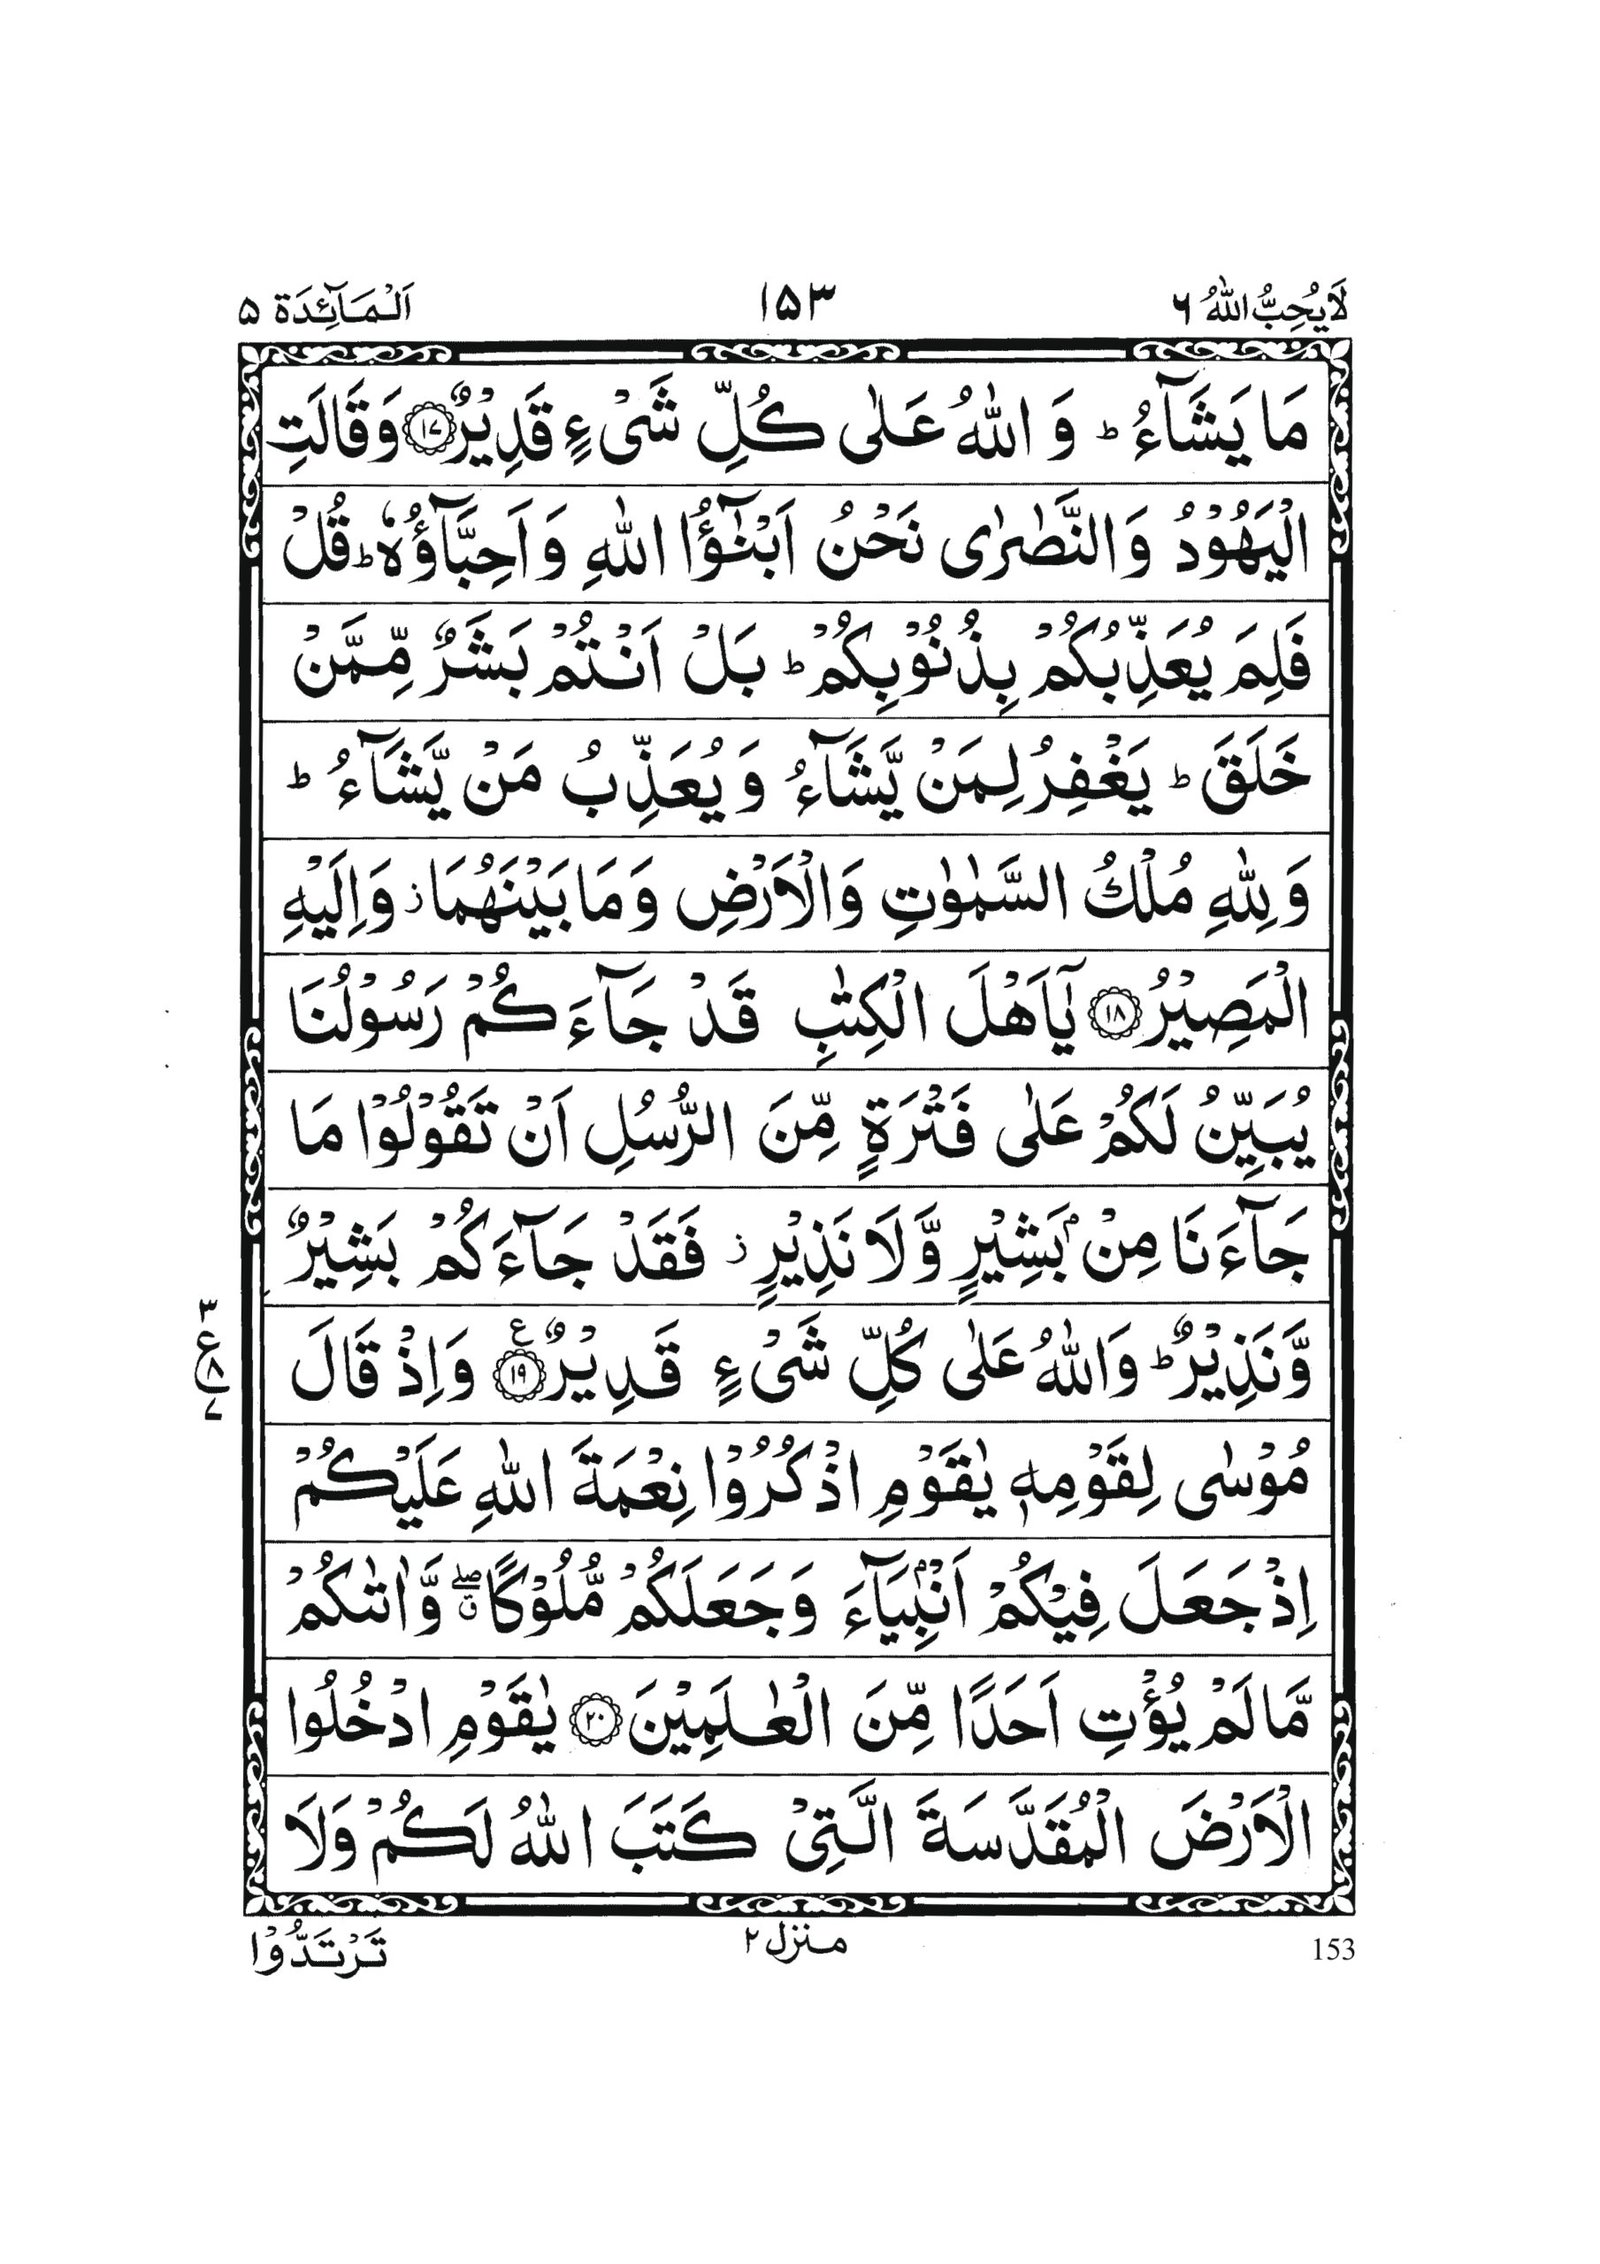 لَا يُحِبُّ اللّٰهُ ۶ ۱۵۳ اَلْمَآئِدَة ۵
مَا يَشَآءُ ؕ وَ اللّٰهُ عَلٰى كُلِّ شَىْءٍ قَدِيْرٌ ﴿۱۷﴾ وَقَالَتِ
الْيَهُوْدُ وَالنَّصٰرٰى نَحْنُ اَبْنٰٓؤُا اللّٰهِ وَاَحِبَّآؤُهٗ ؕ قُلْ
فَلِمَ يُعَذِّبُكُمْ بِذُنُوْبِكُمْ ؕ بَلْ اَنْتُمْ بَشَرٌ مِّمَّنْ
خَلَقَ ؕ يَغْفِرُ لِمَنْ يَّشَآءُ وَيُعَذِّبُ مَنْ يَّشَآءُ ؕ
وَلِلّٰهِ مُلْكُ السَّمٰوٰتِ وَالْاَرْضِ وَمَا بَيْنَهُمَا ز وَاِلَيْهِ
الْمَصِيْرُ ﴿۱۸﴾ يٰۤاَهْلَ الْكِتٰبِ قَدْ جَآءَكُمْ رَسُوْلُنَا
يُبَيِّنُ لَكُمْ عَلٰى فَتْرَةٍ مِّنَ الرُّسُلِ اَنْ تَقُوْلُوْا مَا
جَآءَنَا مِنْۢ بَشِيْرٍ وَّلَا نَذِيْرٍ ز فَقَدْ جَآءَكُمْ بَشِيْرٌ
وَّنَذِيْرٌ ؕ وَاللّٰهُ عَلٰى كُلِّ شَىْءٍ قَدِيْرٌ ﴿۱۹﴾ ع وَاِذْ قَالَ
۳ ع ۸ ۷
مُوْسٰى لِقَوْمِهٖ يٰقَوْمِ اذْكُرُوْا نِعْمَةَ اللّٰهِ عَلَيْكُمْ
اِذْ جَعَلَ فِيْكُمْ اَنْۢبِيَآءَ وَجَعَلَكُمْ مُّلُوْكًا ۖق وَّاٰتٰىكُمْ
مَّا لَمْ يُؤْتِ اَحَدًا مِّنَ الْعٰلَمِيْنَ ﴿۲۰﴾ يٰقَوْمِ ادْخُلُوا
الْاَرْضَ الْمُقَدَّسَةَ الَّتِىْ كَتَبَ اللّٰهُ لَكُمْ وَلَا
153 منزل ۲ تَرْتَدُّوْا